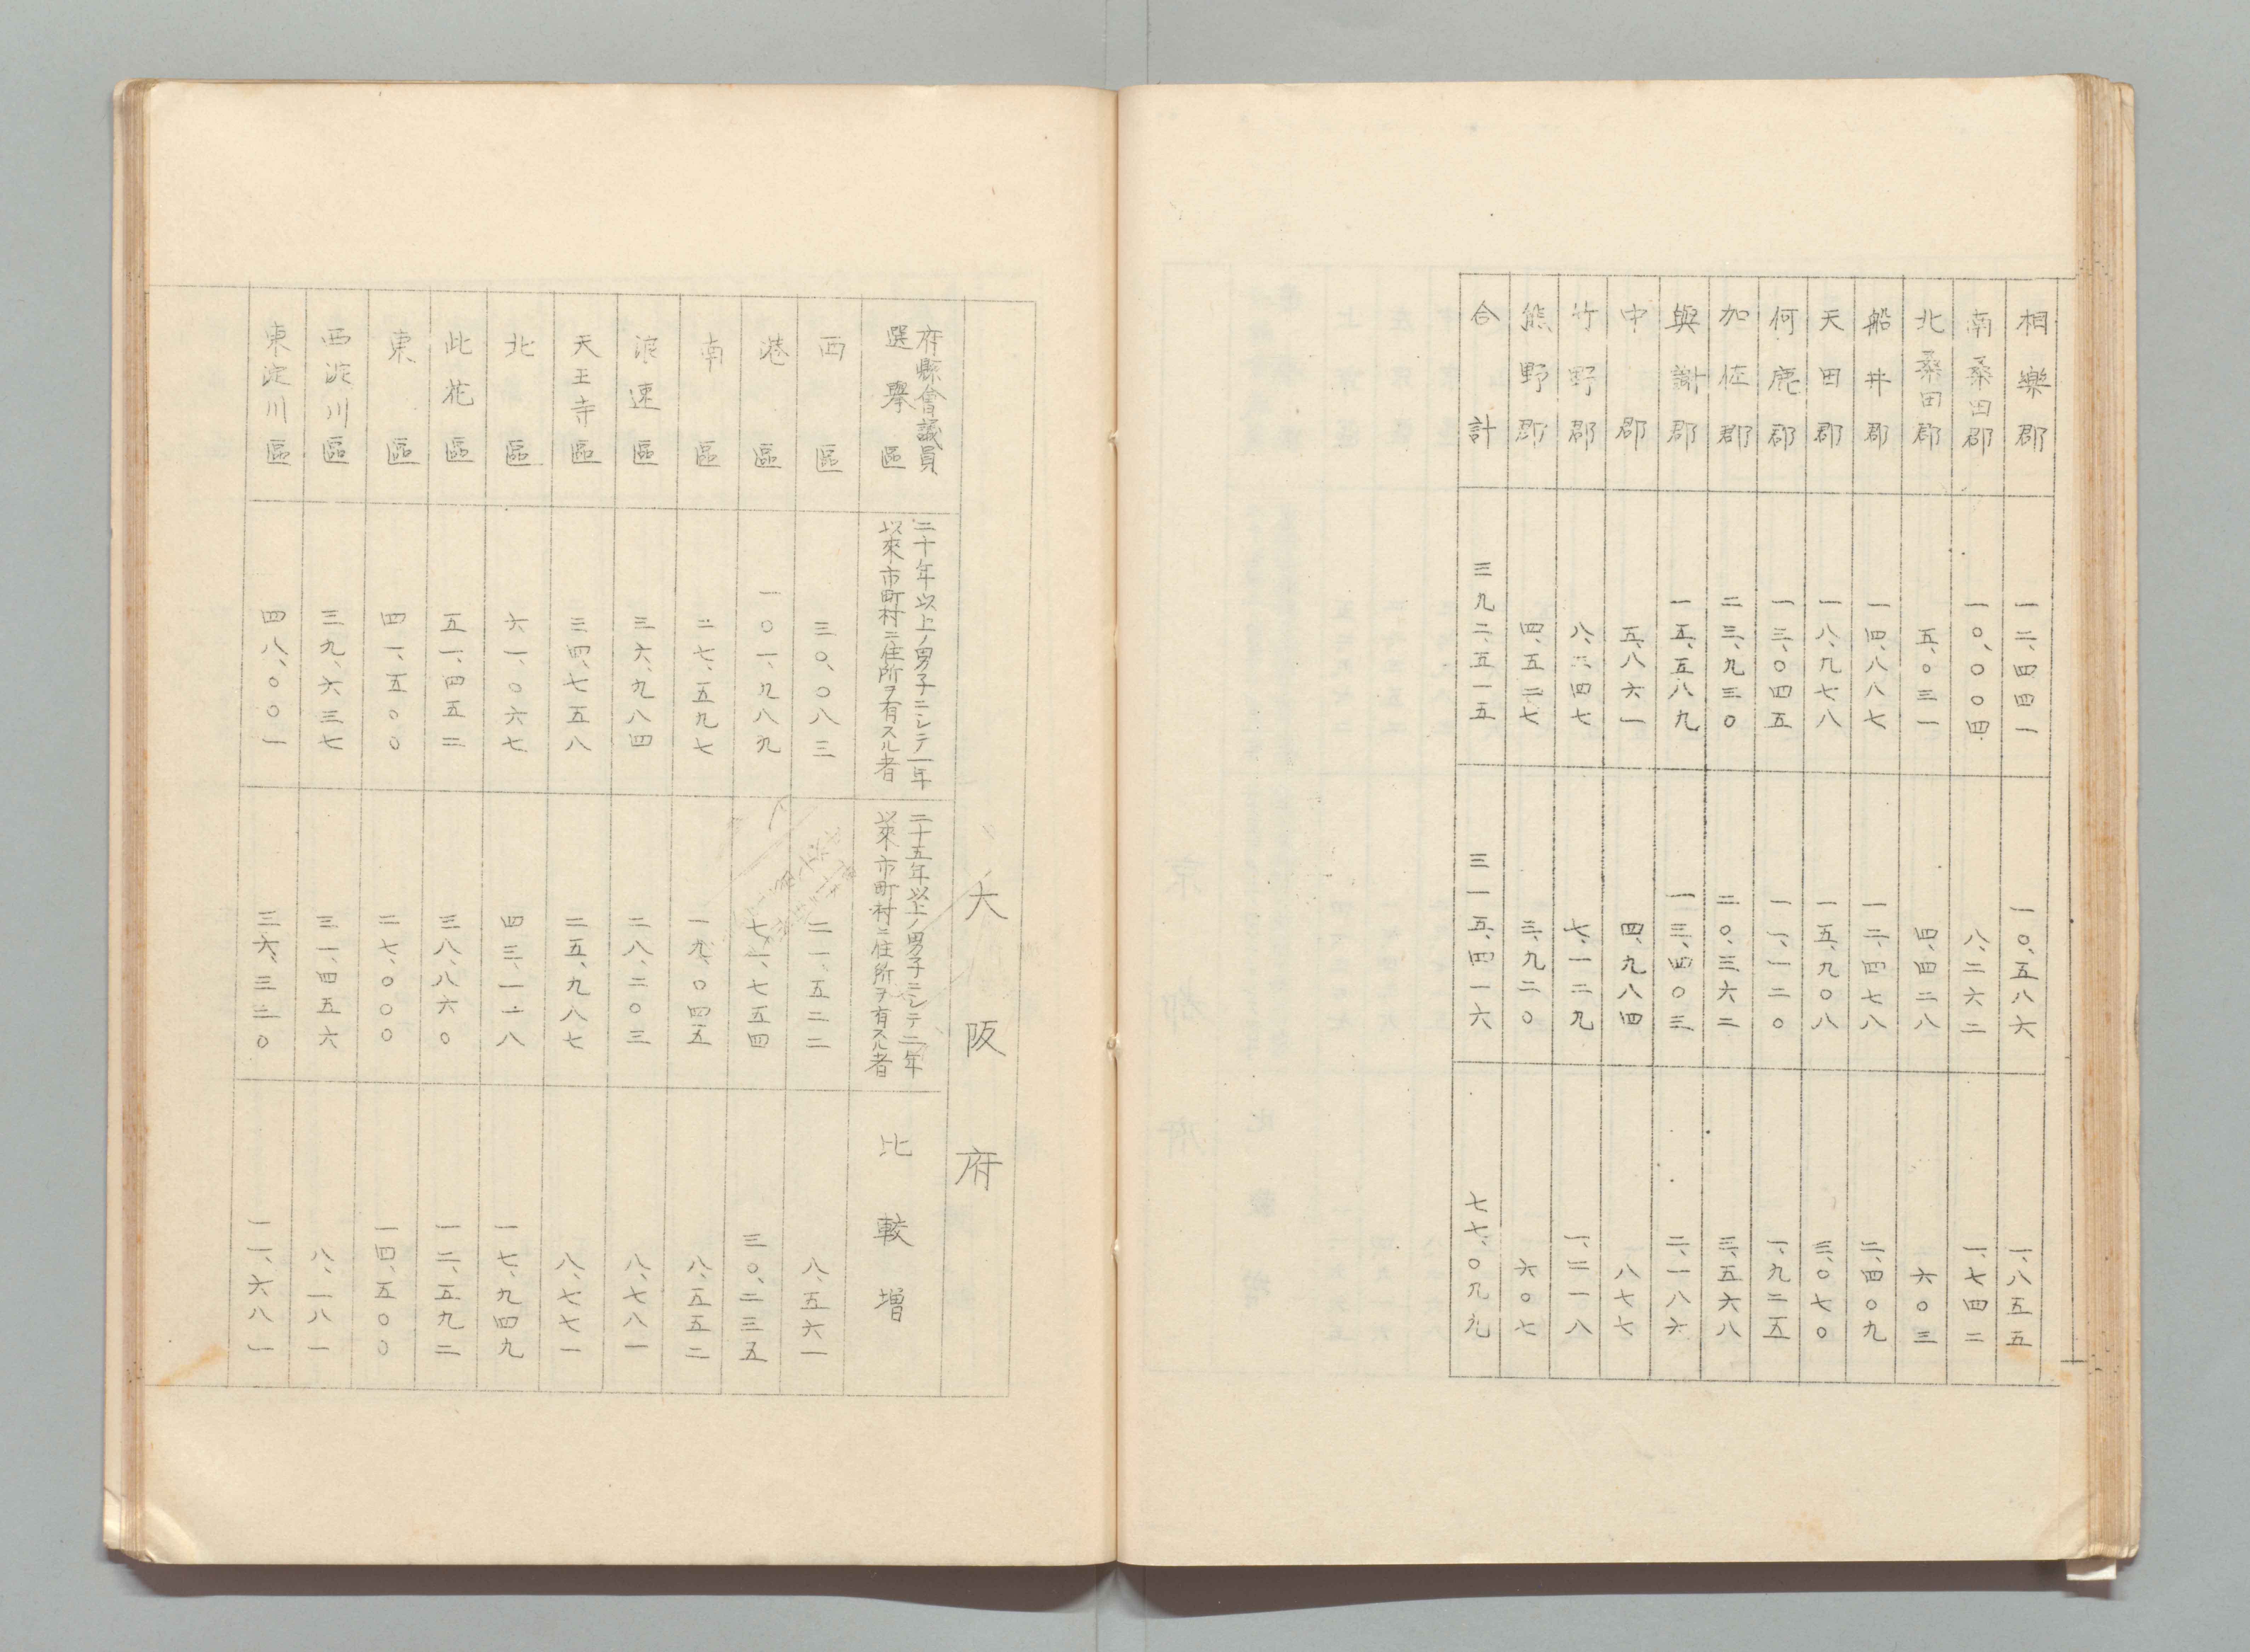 相樂郡 一二、四四一 一〇、五八六 一、八五五
南桑田郡 一〇、〇〇四 八、二六二 一、七四二
北桑田郡 五、〇三一 四、四二八 六〇三
船井郡 一四、八八七 一二、四七八 二、四〇九
天田郡 一八、九七八 一五、九〇八 三、〇七〇
何鹿郡 一三、〇四五 一一、一二〇 一、九二五
加佐郡 二三、九三〇 二〇、三六二 三、五六八
與謝郡 一五、五八九 一三、四〇三 二、一八六
中郡 五、八六一 四、九八四 八七七
竹野郡 八、三四七 七、一二九 一、二一八
熊野郡 四、五二七 三、九二〇 六〇七
合計 三九二、五一五 三一五、四一六 七七、〇九九
大阪府
府縣會議員
選擧區
二十年以上ノ男子ニシテ一年
以來市町村ニ住所ヲ有スル者
二十五年以上ノ男子ニシテ二年
以來市町村ニ住所ヲ有スル者
比較増
西區 三〇、〇八三 二一、五二二 八、五六一
港區 一〇一、九八九 七一、七五四 三〇、二三五
南區 二七、五九七 一九、〇四五 八、五五二
浪速區 三六、九八四 二八、二〇三 八、七八一
天王寺區 三四、七五八 二五、九八七 八、七七一
北區 六一、〇六七 四三、一一八 一七、九四九
此花區 五一、四五二 三八、八六〇 一二、五九二
東區 四一、五〇〇 二七、〇〇〇 一四、五〇〇
西淀川區 三九、六三七 三一、四五六 八、一八一
東淀川區 四八、〇〇一 三六、三二〇 一一、六八一